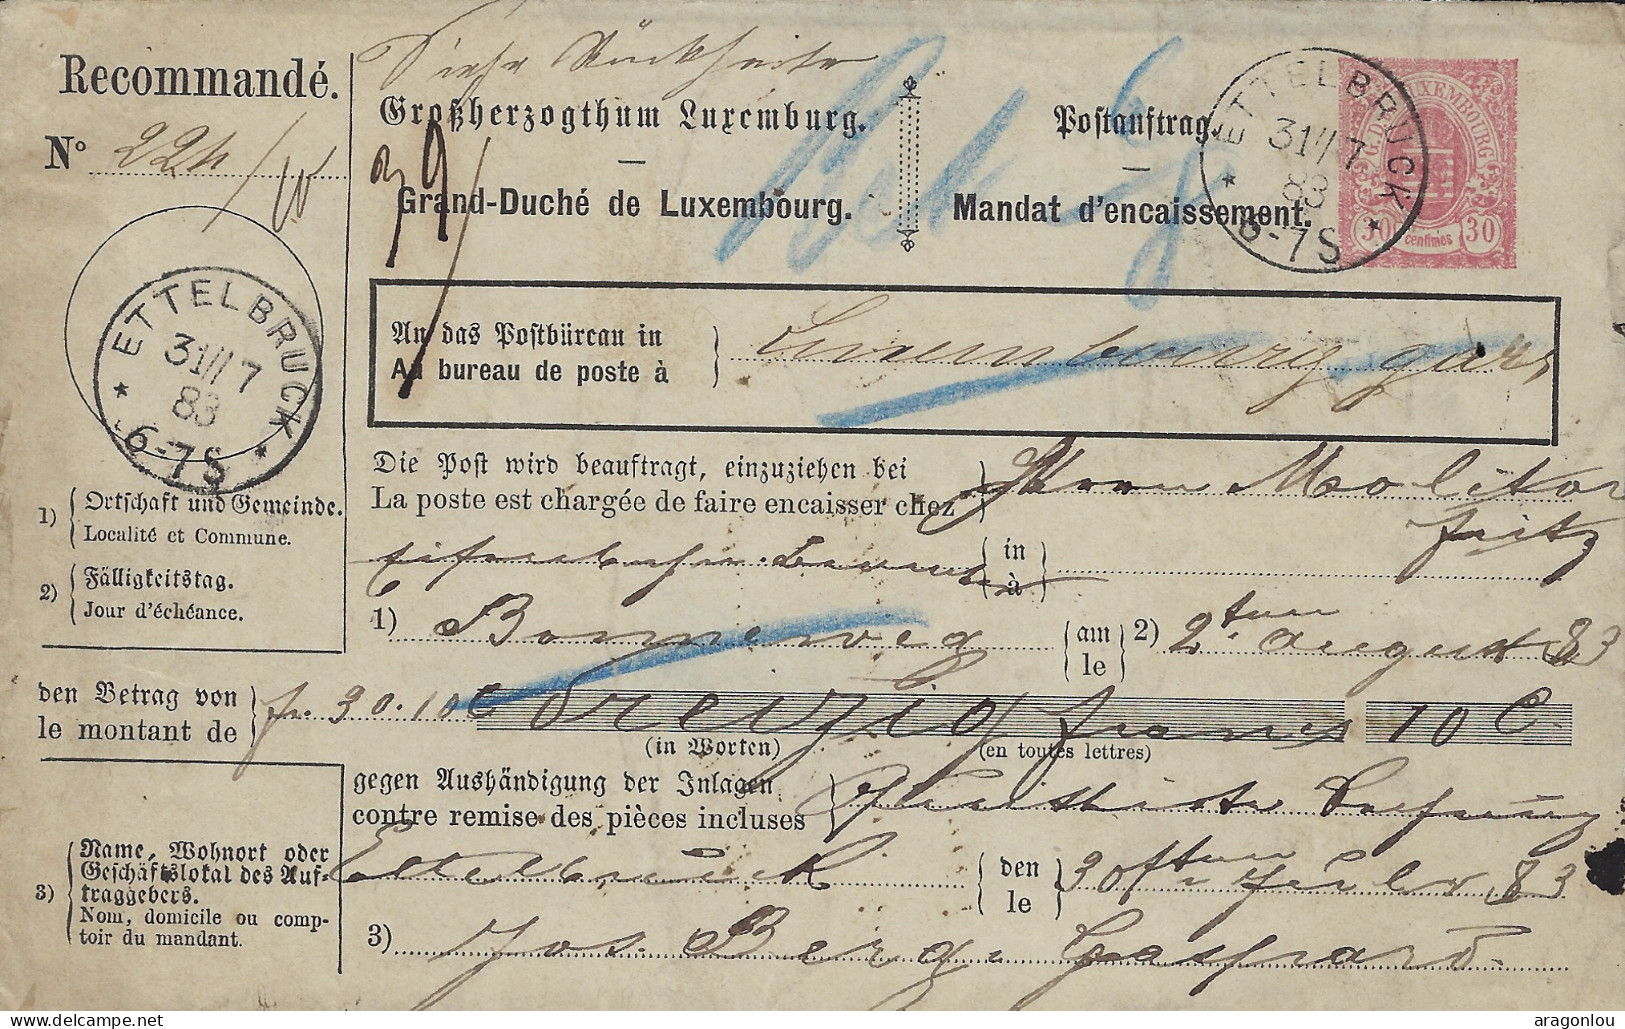 Siehe Rückseite
Recommandé.
Großherzogthum Luxemburg.
Postauftrag.
N° 224
Grand-Duché de Luxembourg.
Mandat d'encaissement.
G. D. LUXEMBOURG
30 centimes 30
ETTELBRUCK
31/7
83
6-7S
ETTELBRUCK
31/7
83
6-7S
An das Postbüreau in
Au bureau de poste à
Luxembourg gare
Die Post wird beauftragt, einzuziehen bei
La poste est chargée de faire encaisser chez
Herrn Molitor
Fritz
in
à
1) Ortschaft und Gemeinde.
Localité et Commune.
2) Fälligkeitstag.
Jour d'échéance.
1) Bonneweg am le 2) 2ten August 83
den Betrag von
le montant de
fr. 30.10 C dreizig francs 10 C.
(in Worten) (en toutes lettres)
gegen Aushändigung der Inlagen
contre remise des pièces incluses
quittirte Rechnung
Ettelbrück den le 30ften Juli 83
3) Name, Wohnort oder
Geschäftslokal des Auf-
traggebers.
Nom, domicile ou comp-
toir du mandant.
3) Jos. Berg. Gaspard
delcampe.net
aragonlou